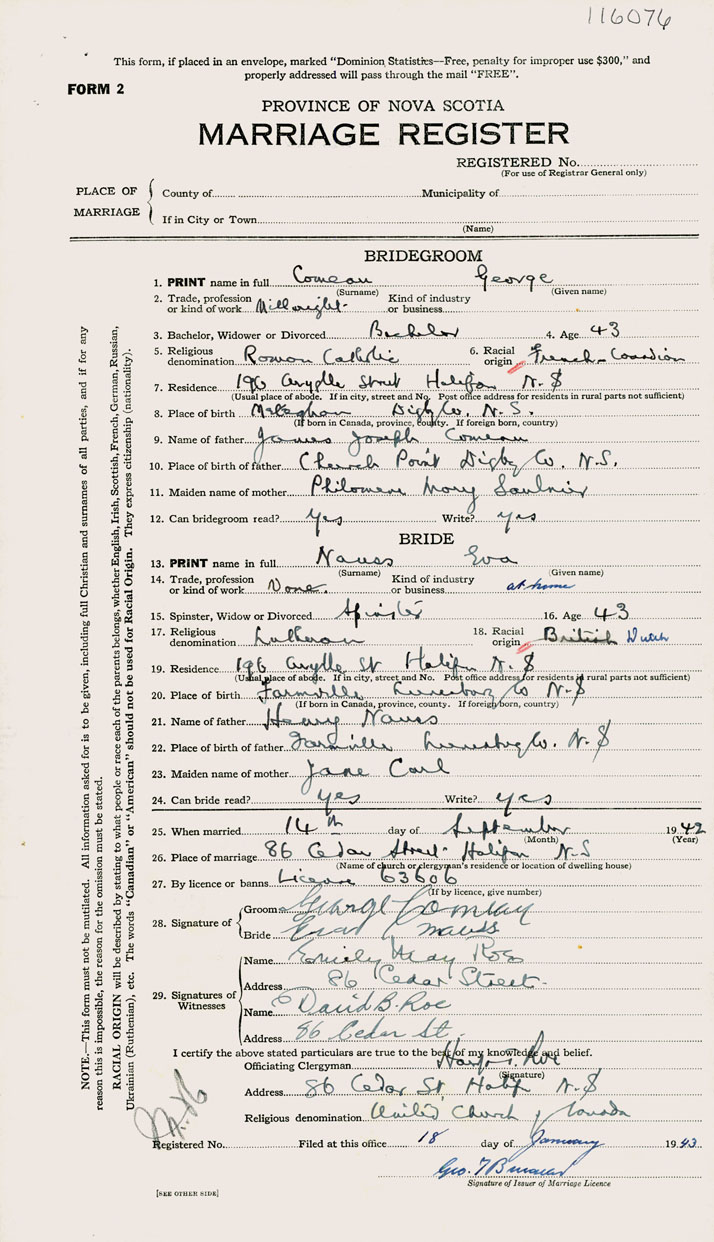 116076
This form, if placed in an envelope, marked "Dominion Statistics—Free, penalty for improper use $300," and
properly addressed will pass through the mail "FREE".
FORM 2
PROVINCE OF NOVA SCOTIA
MARRIAGE REGISTER
REGISTERED No.
(For use of Registrar General only)
PLACE OF MARRIAGE
County of Municipality of
If in City or Town
(Name)
BRIDEGROOM
1. PRINT name in full Comeau George
(Surname) (Given name)
2. Trade, profession or kind of work Millwright Kind of industry or business
3. Bachelor, Widower or Divorced Bachelor 4. Age 43
5. Religious denomination Roman Catholic 6. Racial origin French-Canadian
7. Residence 196 Argyle Street Halifax N.S
(Usual place of abode. If in city, street and No. Post office address for residents in rural parts not sufficient)
8. Place of birth Meteghan Digby Co. N.S.
(If born in Canada, province, county. If foreign born, country)
9. Name of father James Joseph Comeau
10. Place of birth of father Church Point Digby Co. N.S.
11. Maiden name of mother Philomene Mary Saulnier
12. Can bridegroom read? yes Write? yes
BRIDE
13. PRINT name in full Nauss Eva
(Surname) (Given name)
14. Trade, profession or kind of work None. Kind of industry or business at home
15. Spinster, Widow or Divorced Spinster 16. Age 43
17. Religious denomination Lutheran 18. Racial origin British Dutch
19. Residence 196 Argyle St Halifax N.S
(Usual place of abode. If in city, street and No. Post office address for residents in rural parts not sufficient)
20. Place of birth Farmville Lunenburg Co N.S
(If born in Canada, province, county. If foreign born, country)
21. Name of father Henry Nauss
22. Place of birth of father Farmville Lunenburg Co. N.S
23. Maiden name of mother Jane Carl
24. Can bride read? yes Write? yes
25. When married 14th day of September 1942
(Month) (Year)
26. Place of marriage 86 Cedar Street Halifax N.S
(Name of church or clergyman's residence or location of dwelling house)
27. By licence or banns License 63606
(If by licence, give number)
28. Signature of
Groom George Comeau
Bride Eva Nauss
29. Signatures of Witnesses
Name Emily May Roe
Address 86 Cedar Street
Name David B. Roe
Address 86 Cedar St.
I certify the above stated particulars are true to the best of my knowledge and belief.
Officiating Clergyman Roe
(Signature)
Address 86 Cedar St Halifx N.S
Religious denomination United Church of Canada
Registered No. Filed at this office 18 day of January 1943
Geo.
Signature of Issuer of Marriage Licence
[SEE OTHER SIDE]
NOTE.—This form must not be mutilated. All information asked for is to be given, including full Christian and surnames of all parties, and if for any
reason this is impossible, the reason for the omission must be stated.
RACIAL ORIGIN will be described by stating to what people or race each of the parents belongs, whether English, Irish, Scottish, French, German, Russian,
Ukrainian (Ruthenian), etc. The words "Canadian" or "American" should not be used for Racial Origin. They express citizenship (nationality).